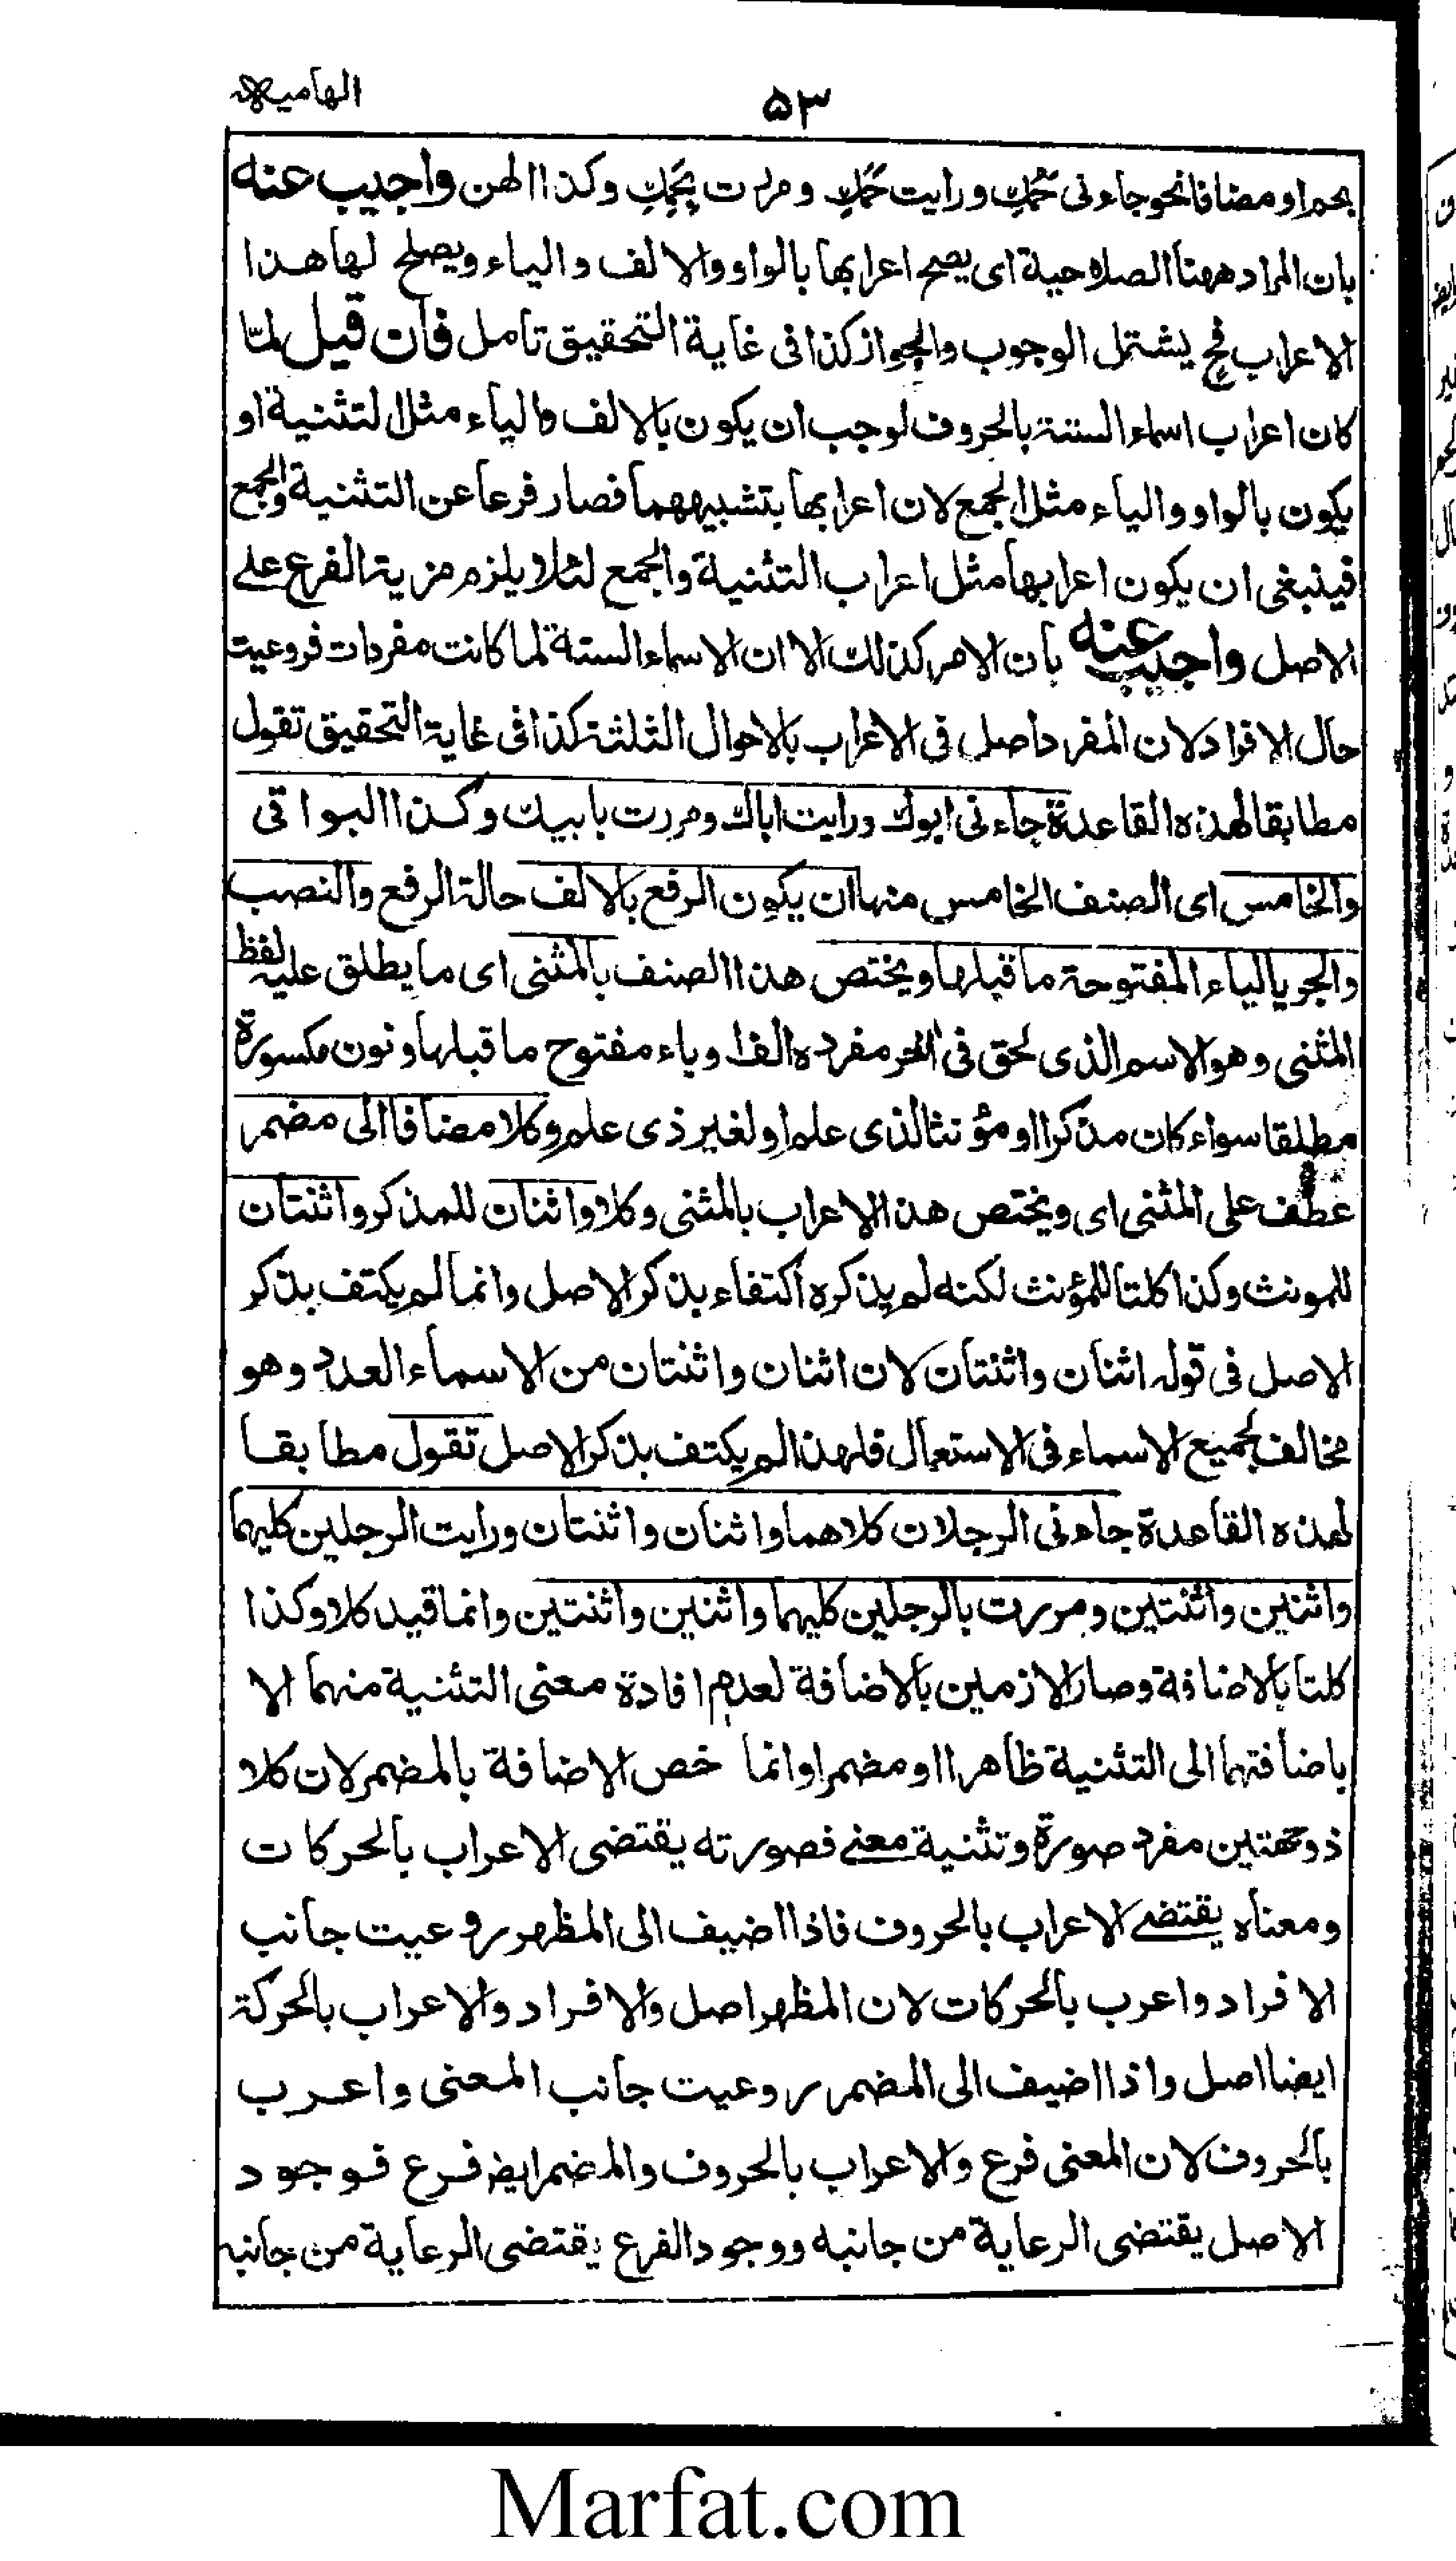 الهاميه
۵۳
بحم او مضافا نحو جاءنی حَمُكِ ورایت حَمَكِ ومررت بِحَمِكِ وكذا الهن واجیب عنه
بان المراد ههنا الصلاحیة ای یصح اعرابها بالواو والالف والیاء ویصلح لها هذا
الاعراب فح یشتمل الوجوب والجواز كذا فی غایة التحقیق تامل فان قیل لمّا
كان اعراب اسماء الستة بالحروف لوجب ان یكون بالالف والیاء مثل التثنیة او
یكون بالواو والیاء مثل الجمع لان اعرابها بتشبیههما فصار فرعا عن التثنیة والجمع
فینبغی ان یكون اعرابها مثل اعراب التثنیة والجمع لئلا یلزم مزیة الفرع علے
الاصل واجیب عنه بان الامر كذلك الا ان الاسماء الستة لما كانت مفردات فروعیت
حال الافراد لان المفرد اصل فی الاعراب بالاحوال الثلثة كذا فی غایة التحقیق تقول
مطابقا لهذه القاعدة جاءنی ابوك ورایت اباك ومررت بابیك وكذا البواقی
والخامس ای الصنف الخامس منها ان یكون الرفع بالالف حالة الرفع والنصب
والجر یالیاء المفتوحة ما قبلها ویختص هذا الصنف بالمثنی ای ما یطلق علیه لفظ
المثنی وهو الاسم الذی لحق فی اٰخر مفرده الفا ویاء مفتوح ما قبلها ونون مكسورة
مطلقا سواء كان مذكرا او مؤنثا لذی علم او لغیر ذی علم وكلا مضافا الی مضمر
عطف علی المثنی ای ویختص هذا الاعراب بالمثنی وكلا واثنان للمذكر واثنتان
للمونث وكذا كلتا للمؤنث لكنه لم یذكره اكتفاء بذكر الاصل وانما لم یكتف بذكر
الاصل فی قوله اثنان واثنتان لان اثنان واثنتان من الاسماء العدد وهو
مخالف لجمیع الاسماء فی الاستعمال فلهذا لم یكتف بذكر الاصل تقول مطابقا
لهذه القاعدة جاءنی الرجلان كلاهما واثنان واثنتان ورایت الرجلین كلیهما
واثنین واثنتین ومررت بالرجلین كلیهما واثنین واثنتین وانما قید كلا وكذا
كلتا بالاضافة وصار لازمین بالاضافة لعدم افادة معنی التثنیة منهما الا
باضافتهما الی التثنیة ظاهرا او مضمرا وانما خص الاضافة بالمضمر لان كلا
ذو جهتین مفرد صورة وتثنیة معنے فصورته یقتضی الاعراب بالحركات
ومعناه یقتضے الاعراب بالحروف فاذا اضیف الی المظهر روعیت جانب
الافراد واعرب بالحركات لان المظهر اصل والافراد والاعراب بالحركة
ایضا اصل واذا اضیف الی المضمر روعیت جانب المعنی واعرب
بالحروف لان المعنی فرع والاعراب بالحروف والمضمر ایضا فرع فوجود
الاصل یقتضی الرعایة من جانبه ووجود الفرع یقتضی الرعایة من جانبه
Marfat.com